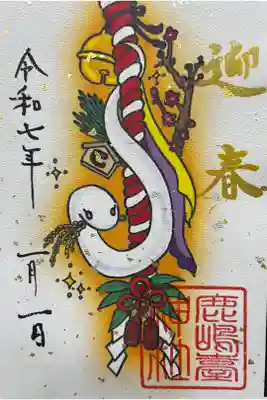 迎春
令和七年
一月一日
鹿嶋臺
神社